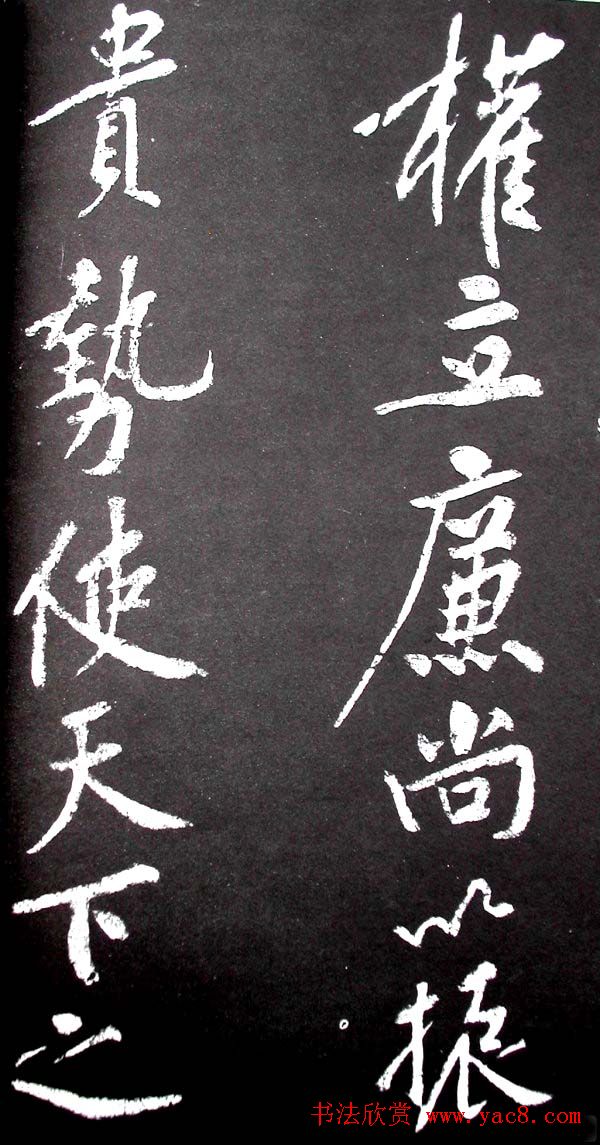 權立廉尚以振
貴勢使天下之
书法欣赏 www.yac8.com